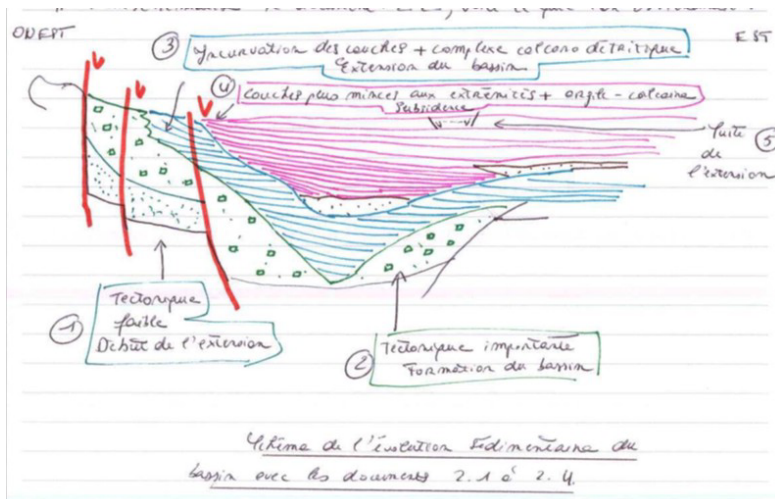 OUEST
EST
③ Incurvation des couches + complexe calcaro détritique
Extension du bassin
④ Couches plus minces aux extrémités + argilo-calcaire
Subsidence
Suite ⑤
de
l'extension
① Tectonique
faible
Début de l'extension
② Tectonique importante
Formation du bassin
Schéma de l'évolution sédimentaire du
bassin avec les documents 2.1 à 2.4.